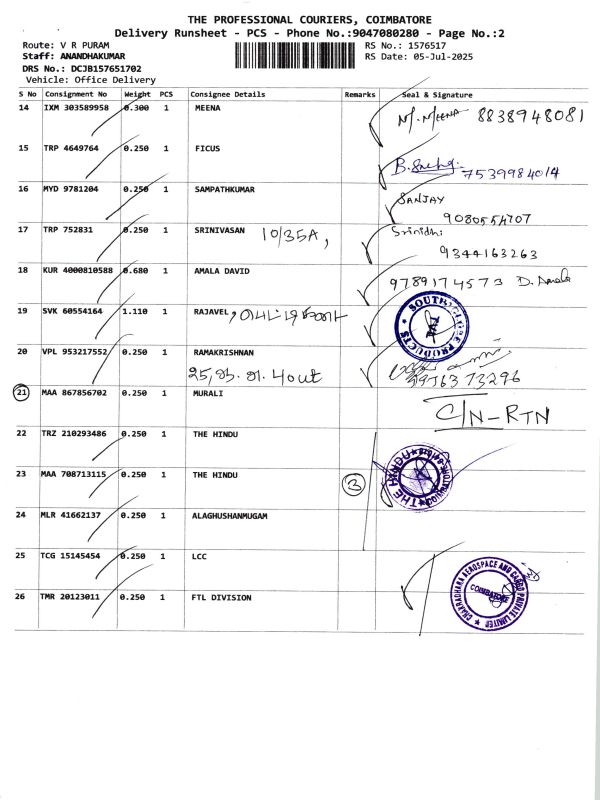 THE PROFESSIONAL COURIERS, COIMBATORE
Delivery Runsheet - PCS - Phone No.:9047080280 - Page No.:2
Route: V R PURAM
RS No.: 1576517
Staff: ANANDHAKUMAR
RS Date: 05-Jul-2025
DRS No.: DCJB157651702
Vehicle: Office Delivery
S No Consignment No Weight PCS Consignee Details Remarks Seal & Signature
14 IXM 303589958 0.300 1 MEENA M. MEENA 8838948081
15 TRP 4649764 0.250 1 FICUS B. 7539984014
16 MYD 9781204 0.250 1 SAMPATHKUMAR SANJAY
9080554707
17 TRP 752831 0.250 1 SRINIVASAN 10/35A, Srinidhi
9344163263
18 KUR 4000810588 0.680 1 AMALA DAVID 9789174573 D. Amala
19 SVK 60554164 1.110 1 RAJAVEL, SOUTH GLOBE PRODUCTS
20 VPL 953217552 0.250 1 RAMAKRISHNAN
25, 4out 9976373296
21 MAA 867856702 0.250 1 MURALI C/N-RTN
22 TRZ 210293486 0.250 1 THE HINDU
23 MAA 708713115 0.250 1 THE HINDU 3 THE HINDU
24 MLR 41662137 0.250 1 ALAGHUSHANMUGAM
25 TCG 15145454 0.250 1 LCC
26 TMR 20123011 0.250 1 FTL DIVISION CHAKRADHARA AEROSPACE AND CARGO PRIVATE LIMITED COIMBATORE